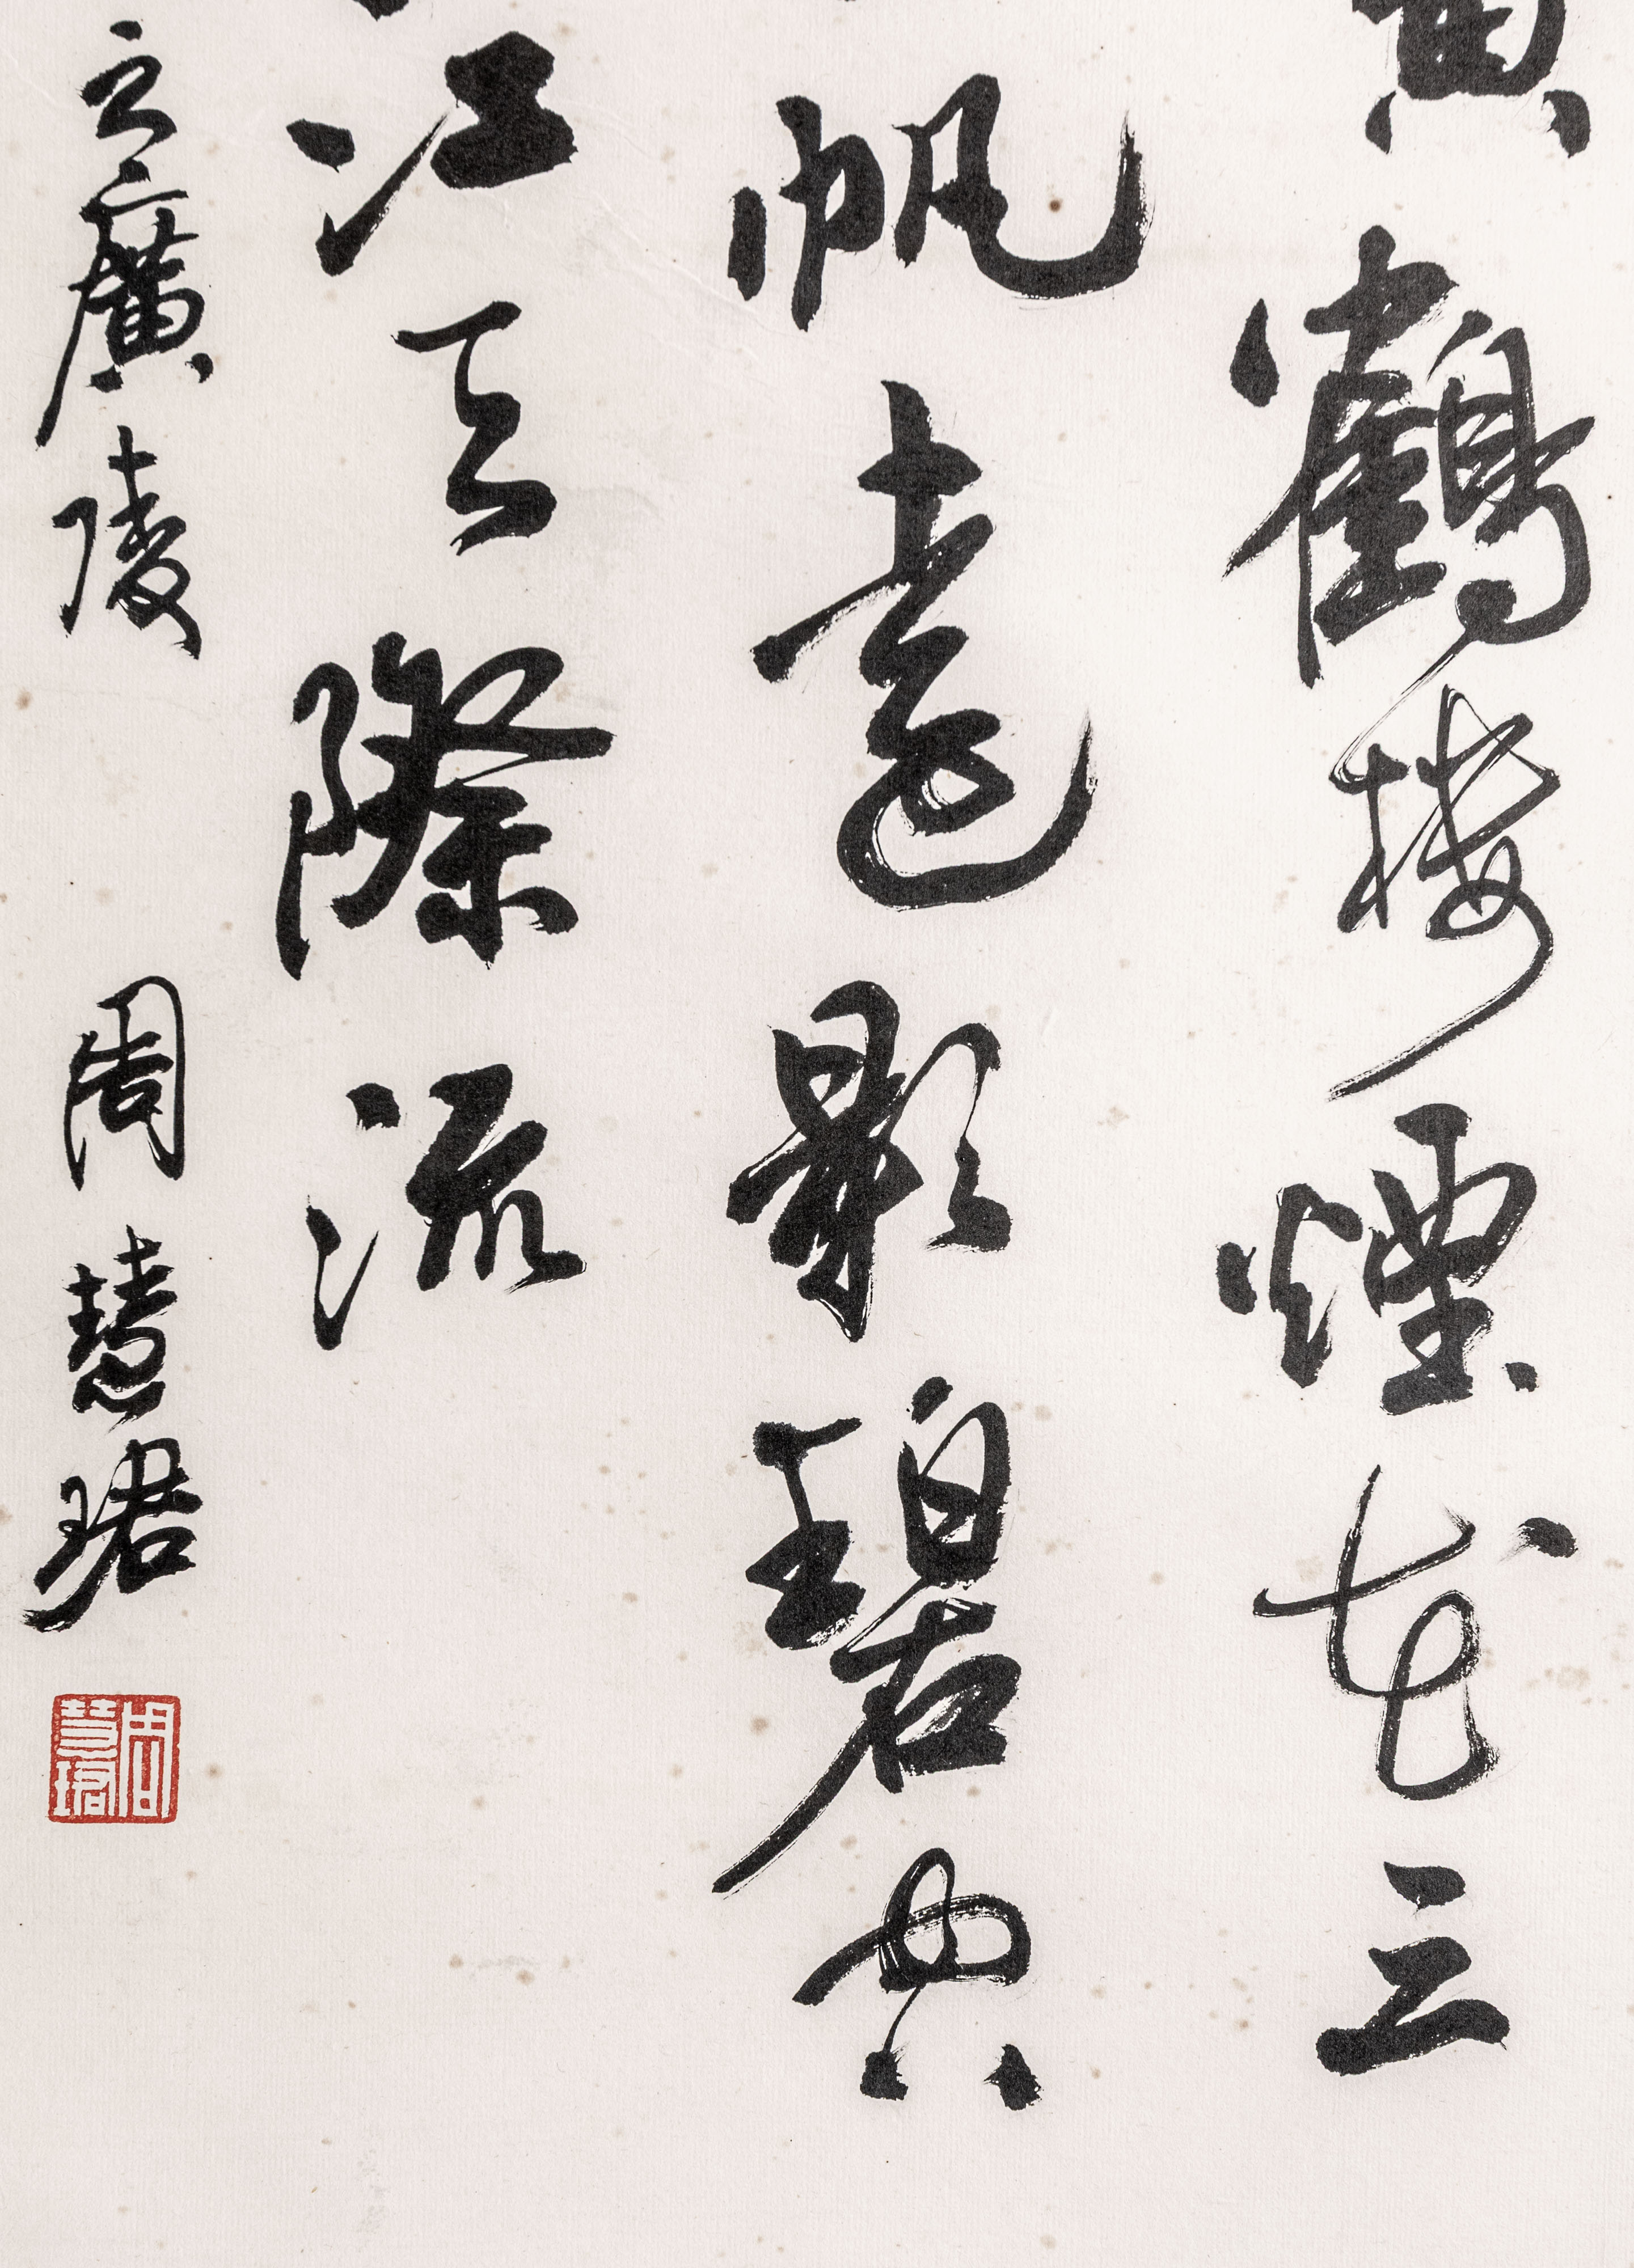 黄鶴楼煙花三
帆遠影碧
江天際流
之廣陵 周慧珺
周慧珺